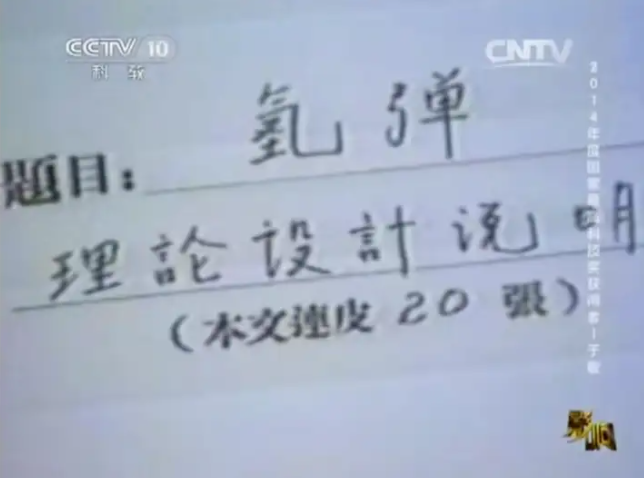 CCTV 10
科教
CNTV
氢弹
題目:
理論设計说明
(本文連皮 20 張)
2014年度国家最高科技奖获得者—于敏